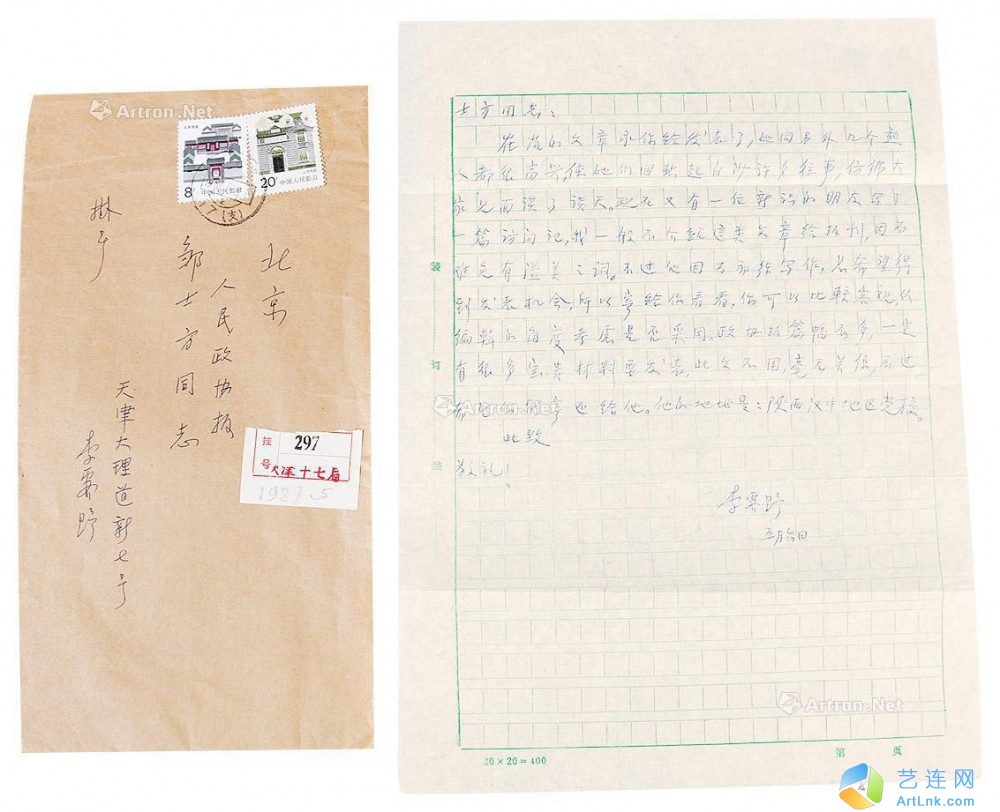 挂号
北京
人民政协报
邹士方同志
天津大理道新七号
李霁野
8分 中国人民邮政
20分 中国人民邮政
(支)
挂号 297
天津十七局
1987.5
士方同志:
的文章承你给发表了,她同另外几个熟
人都很高兴,使她们回忆起白沙许多往事,仿佛大
家见面谈了谈天。现在又有一位新访的朋友写了
一篇访问记,我一般不介绍这类文章给报刊,因为
难免有溢美之词。不过他因为初练写作,若希望得
到发表机会,所以寄给你看看。你可以比较客观从
编辑的角度考虑是否采用。政协报篇幅不多,一定
有很多宝贵材料要发表,此文不用,毫无关系,不过
还给他。他的地址是:陕西汉中地区党校。
此致
敬礼!
李霁野
装
订
线
20×20=400
第 页
Artron.Net
Artron.Net
Artron.Net
Artron.Net
艺连网
ArtLnk.com